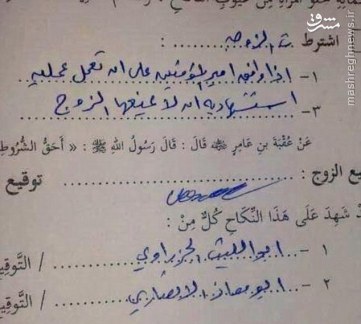 اشترط ت الزوجه
١- اذا وافق امير المؤمنين على ان تعمل عمليه
استشهاديه ان لا يمنعها الزوج
٣-
عَنْ عُقْبَةَ بنِ عَامِرٍ قَالَ : قَالَ رَسُولُ اللهِ ﷺ : « أَحَقُّ الشُّرُوطِ
ع الزوج : توقيع
شَهِدَ عَلَى هَذَا النِّكَاحِ كُلٌّ مِنْ :
١ - ابو الليث الجزراوي / التَّوقِيع
٢ - ابو معاذ الانصاري / التَّوقِيع
مشرق
mashreghnews.ir